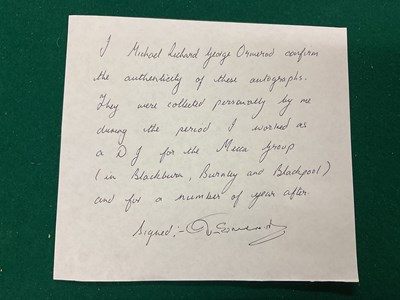 I Michael Richard George Ormerod confirm
the authenticity of these autographs.
They were collected personally by me
during the period I worked as
a DJ for the Mecca Group
(in Blackburn, Burnley and Blackpool)
and for a number of year after.
Signed :-